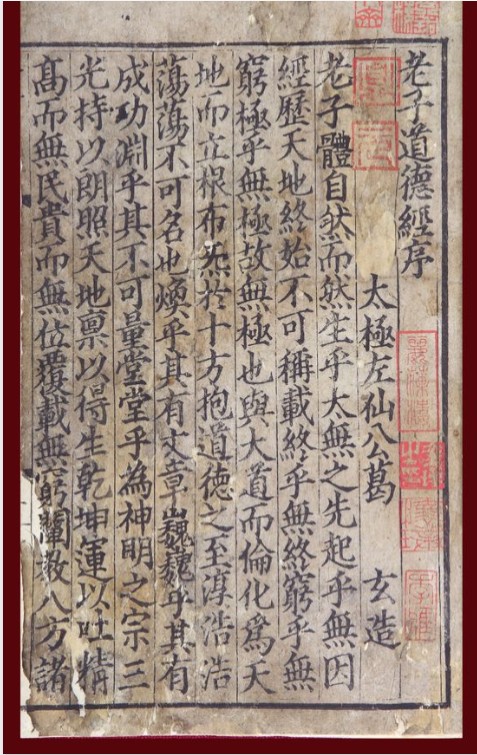 老子道德經序
太極左仙公葛　玄造
老子體自然而然生乎太無之先起乎無因
經歷天地終始不可稱載終乎無終窮乎無
窮極乎無極故無極也與大道而倫化爲天
地而立根布炁於十方抱道德之至淳浩浩
蕩蕩不可名也煥乎其有文章巍巍乎其有
成功淵乎其不可量堂堂乎為神明之宗三
光持以朗照天地禀以得生乾坤運以吐精
髙而無民貴而無位覆載無窮闡教八方諸